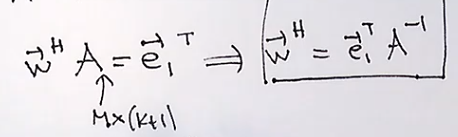 w⃗ᴴ A = e⃗₁ᵀ ⟹ w⃗ᴴ = e⃗₁ᵀ A⁻¹
↑
M×(K+1)